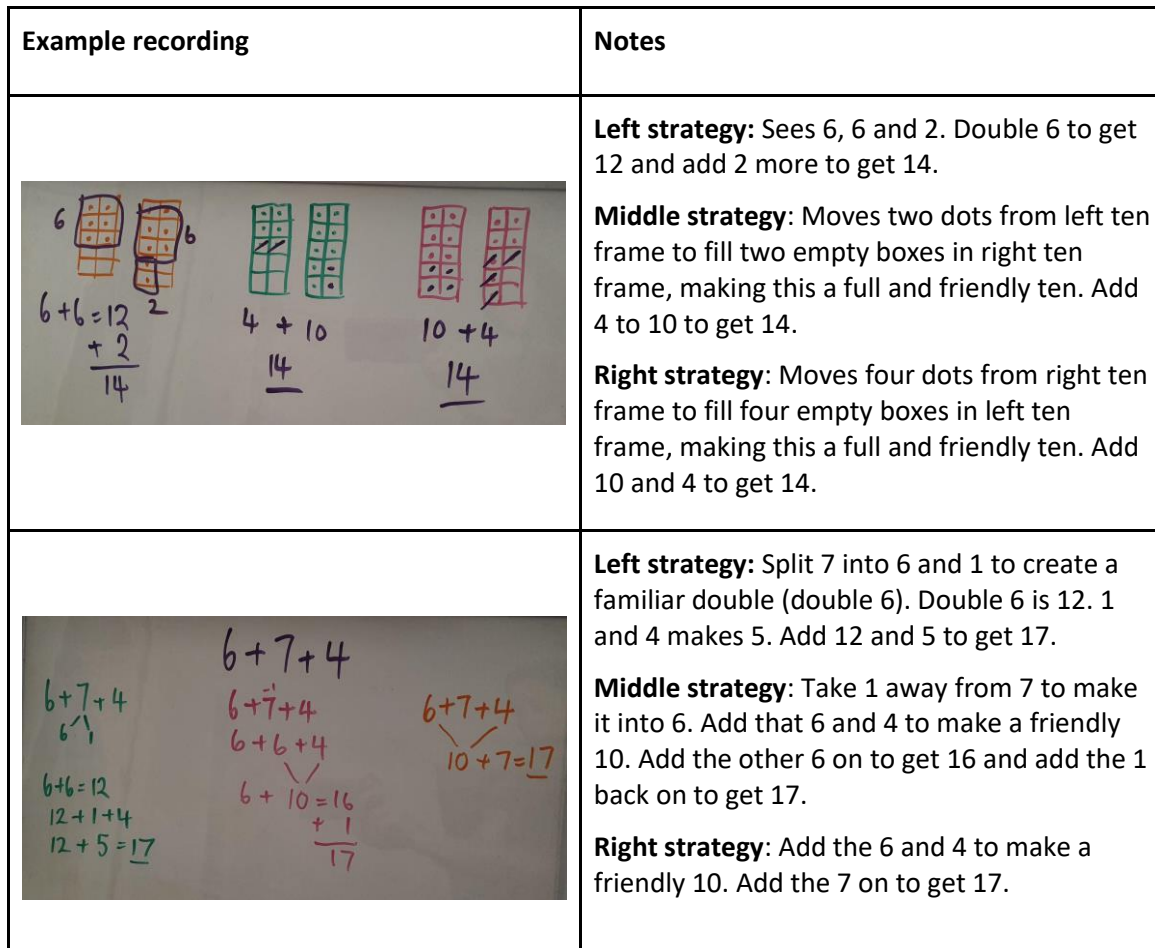 Example recording
Notes
6
6
2
6+6=12
+ 2
14
4 + 10
14
10 + 4
14
Left strategy: Sees 6, 6 and 2. Double 6 to get
12 and add 2 more to get 14.
Middle strategy: Moves two dots from left ten
frame to fill two empty boxes in right ten
frame, making this a full and friendly ten. Add
4 to 10 to get 14.
Right strategy: Moves four dots from right ten
frame to fill four empty boxes in left ten
frame, making this a full and friendly ten. Add
10 and 4 to get 14.
6+7+4
6+7+4
6 1
6+6=12
12+1+4
12+5=17
-1
6+7+4
6+6+4
6 + 10 = 16
+ 1
17
6+7+4
10+7=17
Left strategy: Split 7 into 6 and 1 to create a
familiar double (double 6). Double 6 is 12. 1
and 4 makes 5. Add 12 and 5 to get 17.
Middle strategy: Take 1 away from 7 to make
it into 6. Add that 6 and 4 to make a friendly
10. Add the other 6 on to get 16 and add the 1
back on to get 17.
Right strategy: Add the 6 and 4 to make a
friendly 10. Add the 7 on to get 17.